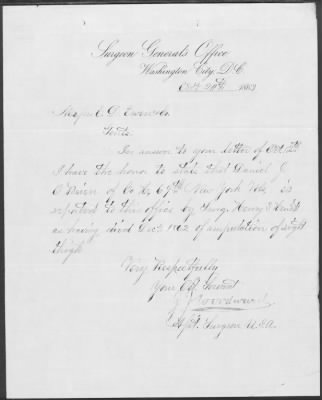 Surgeon General's Office
Washington City, D.C.
Oct 20th 1863
Major E. D.
In answer to your letter of Oct
I have the honor to state that Daniel
O'Brien of Co H, 69th New York Vols is
reported to this office by Surg. Henry
as having died Dec 1862 of amputation of right
thigh
Very Respectfully
Your Obt Servant
Woodward
Asst. Surgeon U.S.A.